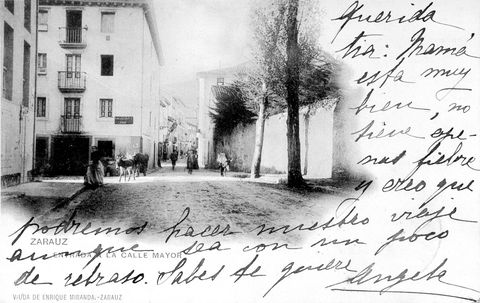 Querida
tia: Mamá
esta muy
bien, no
tiene ape-
nas fiebre
y creo que
podremos hacer nuestro viaje
aunque sea con un poco
de retraso. Sabes te quiere Angela
ZARAUZ
ENTRADA A LA CALLE MAYOR
VIUDA DE ENRIQUE MIRANDA.-ZARAUZ